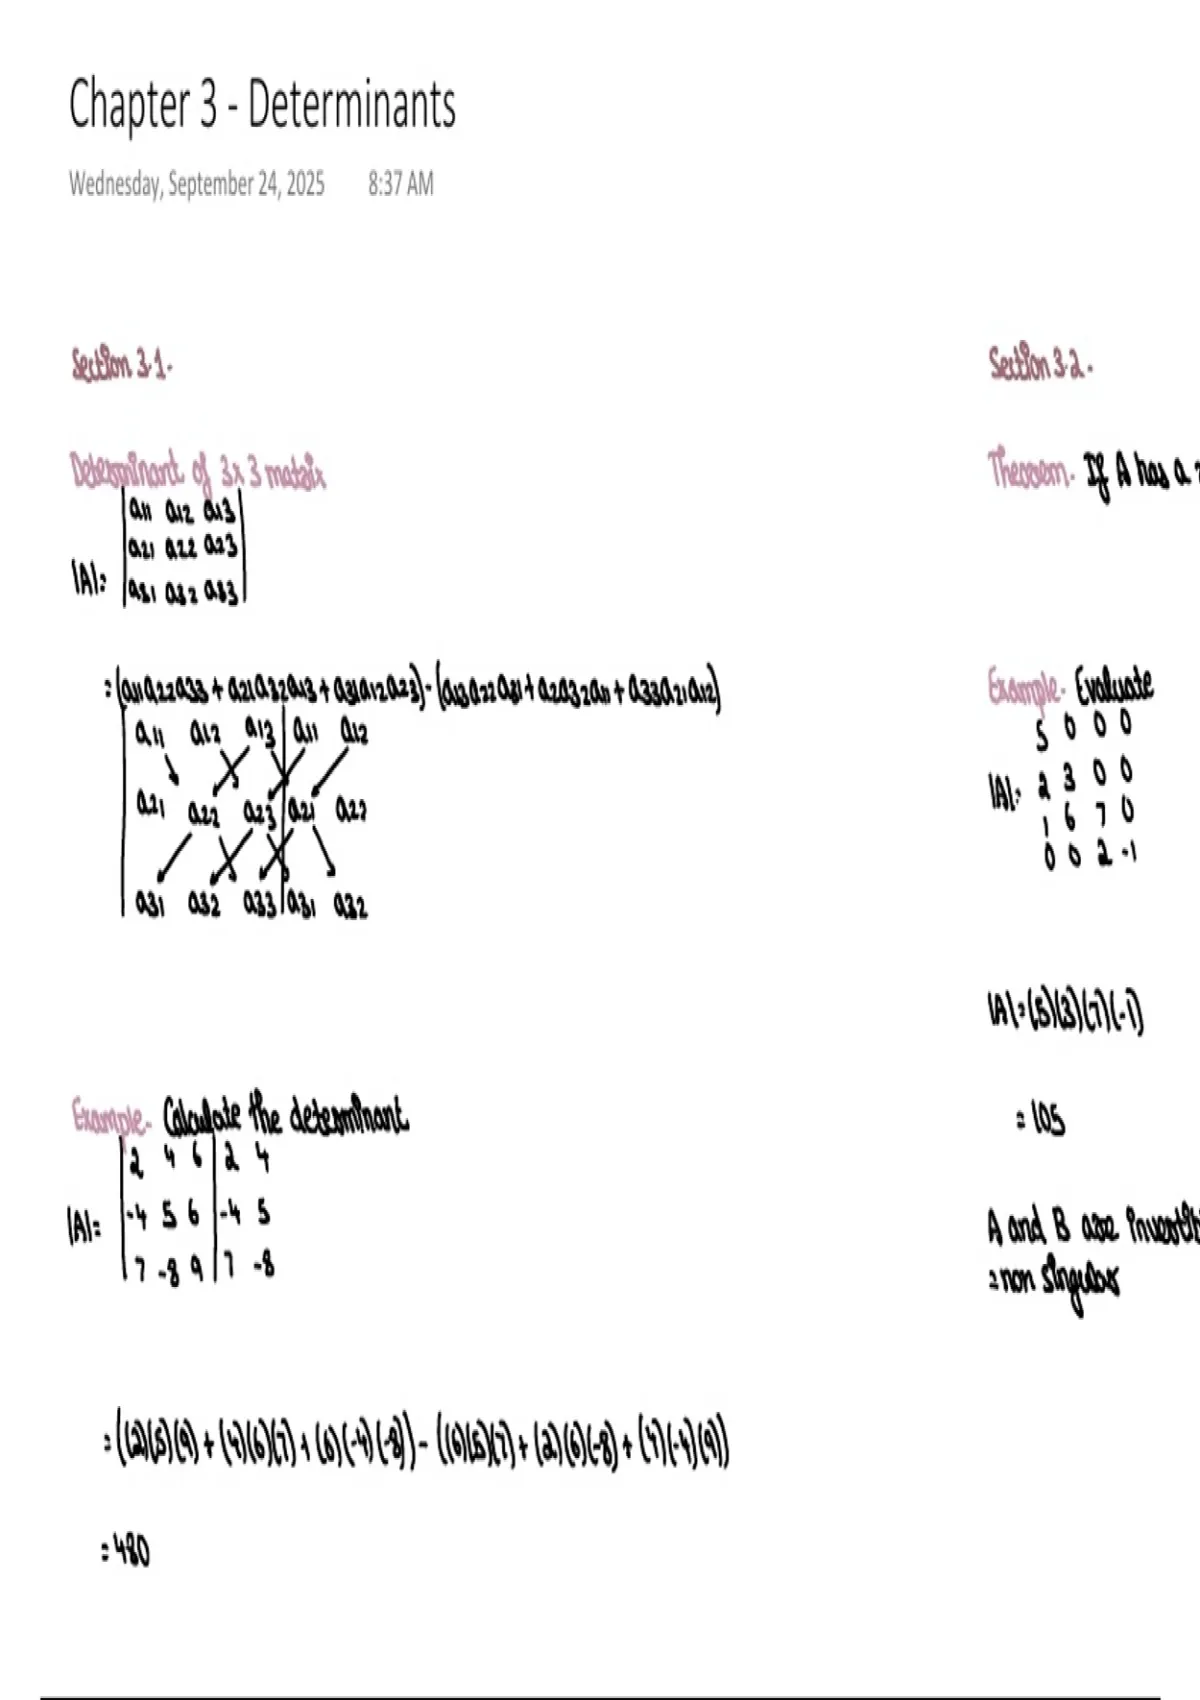 Chapter 3 - Determinants
Wednesday, September 24, 2025 8:37 AM
Section 3.1.
Determinant of 3x3 matrix
a11 a12 a13
a21 a22 a23
|A|=
a31 a32 a33
=(a11a22a33 + a21a32a13 + a31a12a23) - (a13a22a31 + a23a32a11 + a33a21a12)
a11 a12 a13 a11 a12
a21 a22 a23 a21 a22
a31 a32 a33 a31 a32
Example- Calculate the determinant
2 4 6 2 4
|A|= -4 5 6 -4 5
7 -8 9 7 -8
=((2)(5)(9) + (4)(6)(7) + (6)(-4)(-8)) - ((6)(5)(7) + (2)(6)(-8) + (4)(-4)(9))
=480
Section 3.2.
Theorem. If A has a
Example- Evaluate
5 0 0 0
|A|= 2 3 0 0
1 6 7 0
0 0 2 -1
|A|=(5)(3)(7)(-1)
= 105
A and B are
= non singular